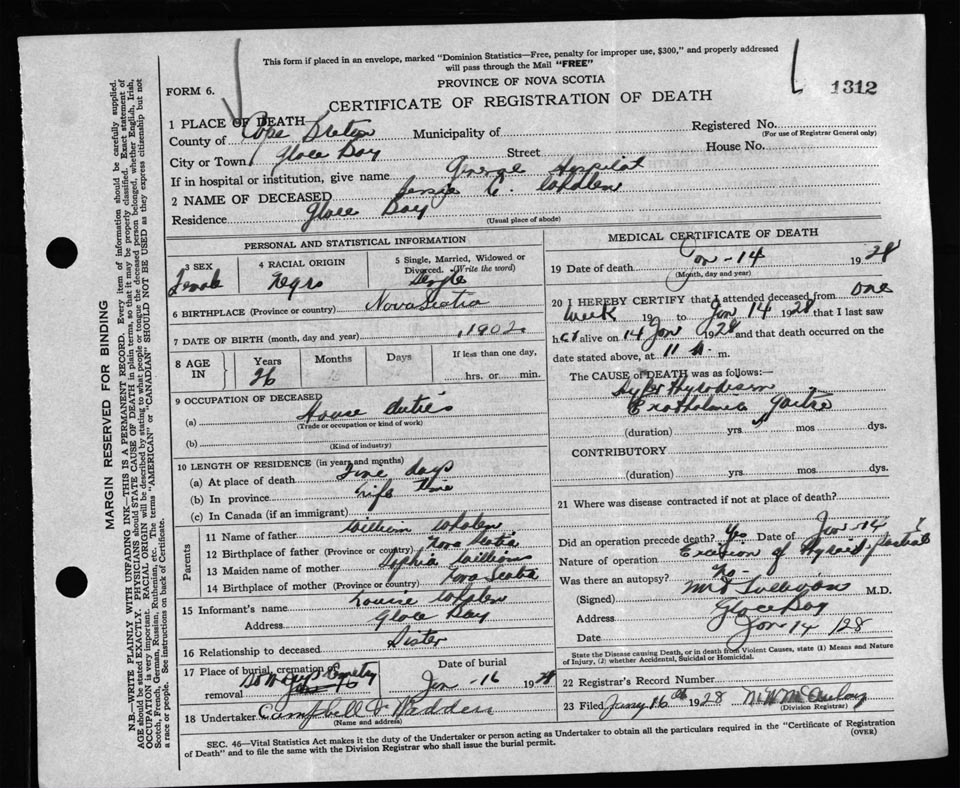 This form if placed in an envelope, marked "Dominion Statistics—Free, penalty for improper use, $300," and properly addressed
will pass through the Mail "FREE"
PROVINCE OF NOVA SCOTIA
FORM 6.
1312
CERTIFICATE OF REGISTRATION OF DEATH
1 PLACE OF DEATH
Registered No.
(For use of Registrar General only)
County of Cape Breton Municipality of
City or Town Glace Bay Street House No.
If in hospital or institution, give name General Hospital
2 NAME OF DECEASED Jessie C. Whalen
Residence Glace Bay
(Usual place of abode)
PERSONAL AND STATISTICAL INFORMATION
3 SEX 4 RACIAL ORIGIN 5 Single, Married, Widowed or
Divorced. (Write the word)
Female Negro Single
6 BIRTHPLACE (Province or country) Nova Scotia
7 DATE OF BIRTH (month, day and year) 1902
8 AGE IN Years Months Days If less than one day,
26 hrs. or min.
9 OCCUPATION OF DECEASED
(a) House duties
(Trade or occupation or kind of work)
(b)
(Kind of industry)
10 LENGTH OF RESIDENCE (in years and months)
(a) At place of death days
(b) In province Life time
(c) In Canada (if an immigrant)
Parents
11 Name of father William Whalen
12 Birthplace of father (Province or country) Nova Scotia
13 Maiden name of mother Sophia Williams
14 Birthplace of mother (Province or country) Nova Scotia
15 Informant's name Louise Whalen
Address Glace Bay
16 Relationship to deceased Sister
17 Place of burial, cremation or removal Cemetery
Date of burial Jan - 16 1928
18 Undertaker Campbell & Madden
(Name and address)
MEDICAL CERTIFICATE OF DEATH
19 Date of death Jan - 14 1928
(Month, day and year)
20 I HEREBY CERTIFY that I attended deceased from one
week 19 to Jan 14 1928 that I last saw
her alive on 14 Jan 1928 and that death occurred on the
date stated above, at 11 A. m.
The CAUSE of DEATH was as follows:—
Hyperthyroidism
Exophthalmic Goitre
(duration) yrs. mos dys.
CONTRIBUTORY
(duration) yrs. mos. dys.
21 Where was disease contracted if not at place of death?
Did an operation precede death? Yes Date of Jan - 14
Nature of operation Excision of thyroid, partial
Was there an autopsy? No -
(Signed) Sullivan M.D.
Address Glace Bay
Date Jan 14 /28
State the Disease causing Death, or in death from Violent Causes, state (1) Means and Nature
of Injury, (2) whether Accidental, Suicidal or Homicidal.
22 Registrar's Record Number
23 Filed Jany 16th 1928
(Division Registrar)
SEC. 46—Vital Statistics Act makes it the duty of the Undertaker or person acting as Undertaker to obtain all the particulars required in the "Certificate of Registration
of Death" and to file the same with the Division Registrar who shall issue the burial permit.
(OVER)
MARGIN RESERVED FOR BINDING
N.B.—WRITE PLAINLY WITH UNFADING INK—THIS IS A PERMANENT RECORD. Every item of information should be carefully supplied.
AGE should be stated EXACTLY. PHYSICIANS should STATE CAUSE OF DEATH in plain terms, so that it may be properly classified. Exact statement of
OCCUPATION is very important. RACIAL ORIGIN will be described by stating to what people or tongue the deceased person belonged, whether English, Irish,
Scotch, French, German, Russian, Ruthenian, etc. The terms "AMERICAN" or "CANADIAN" SHOULD NOT BE USED as they express citizenship but not
a race or people. See instructions on back of Certificate.